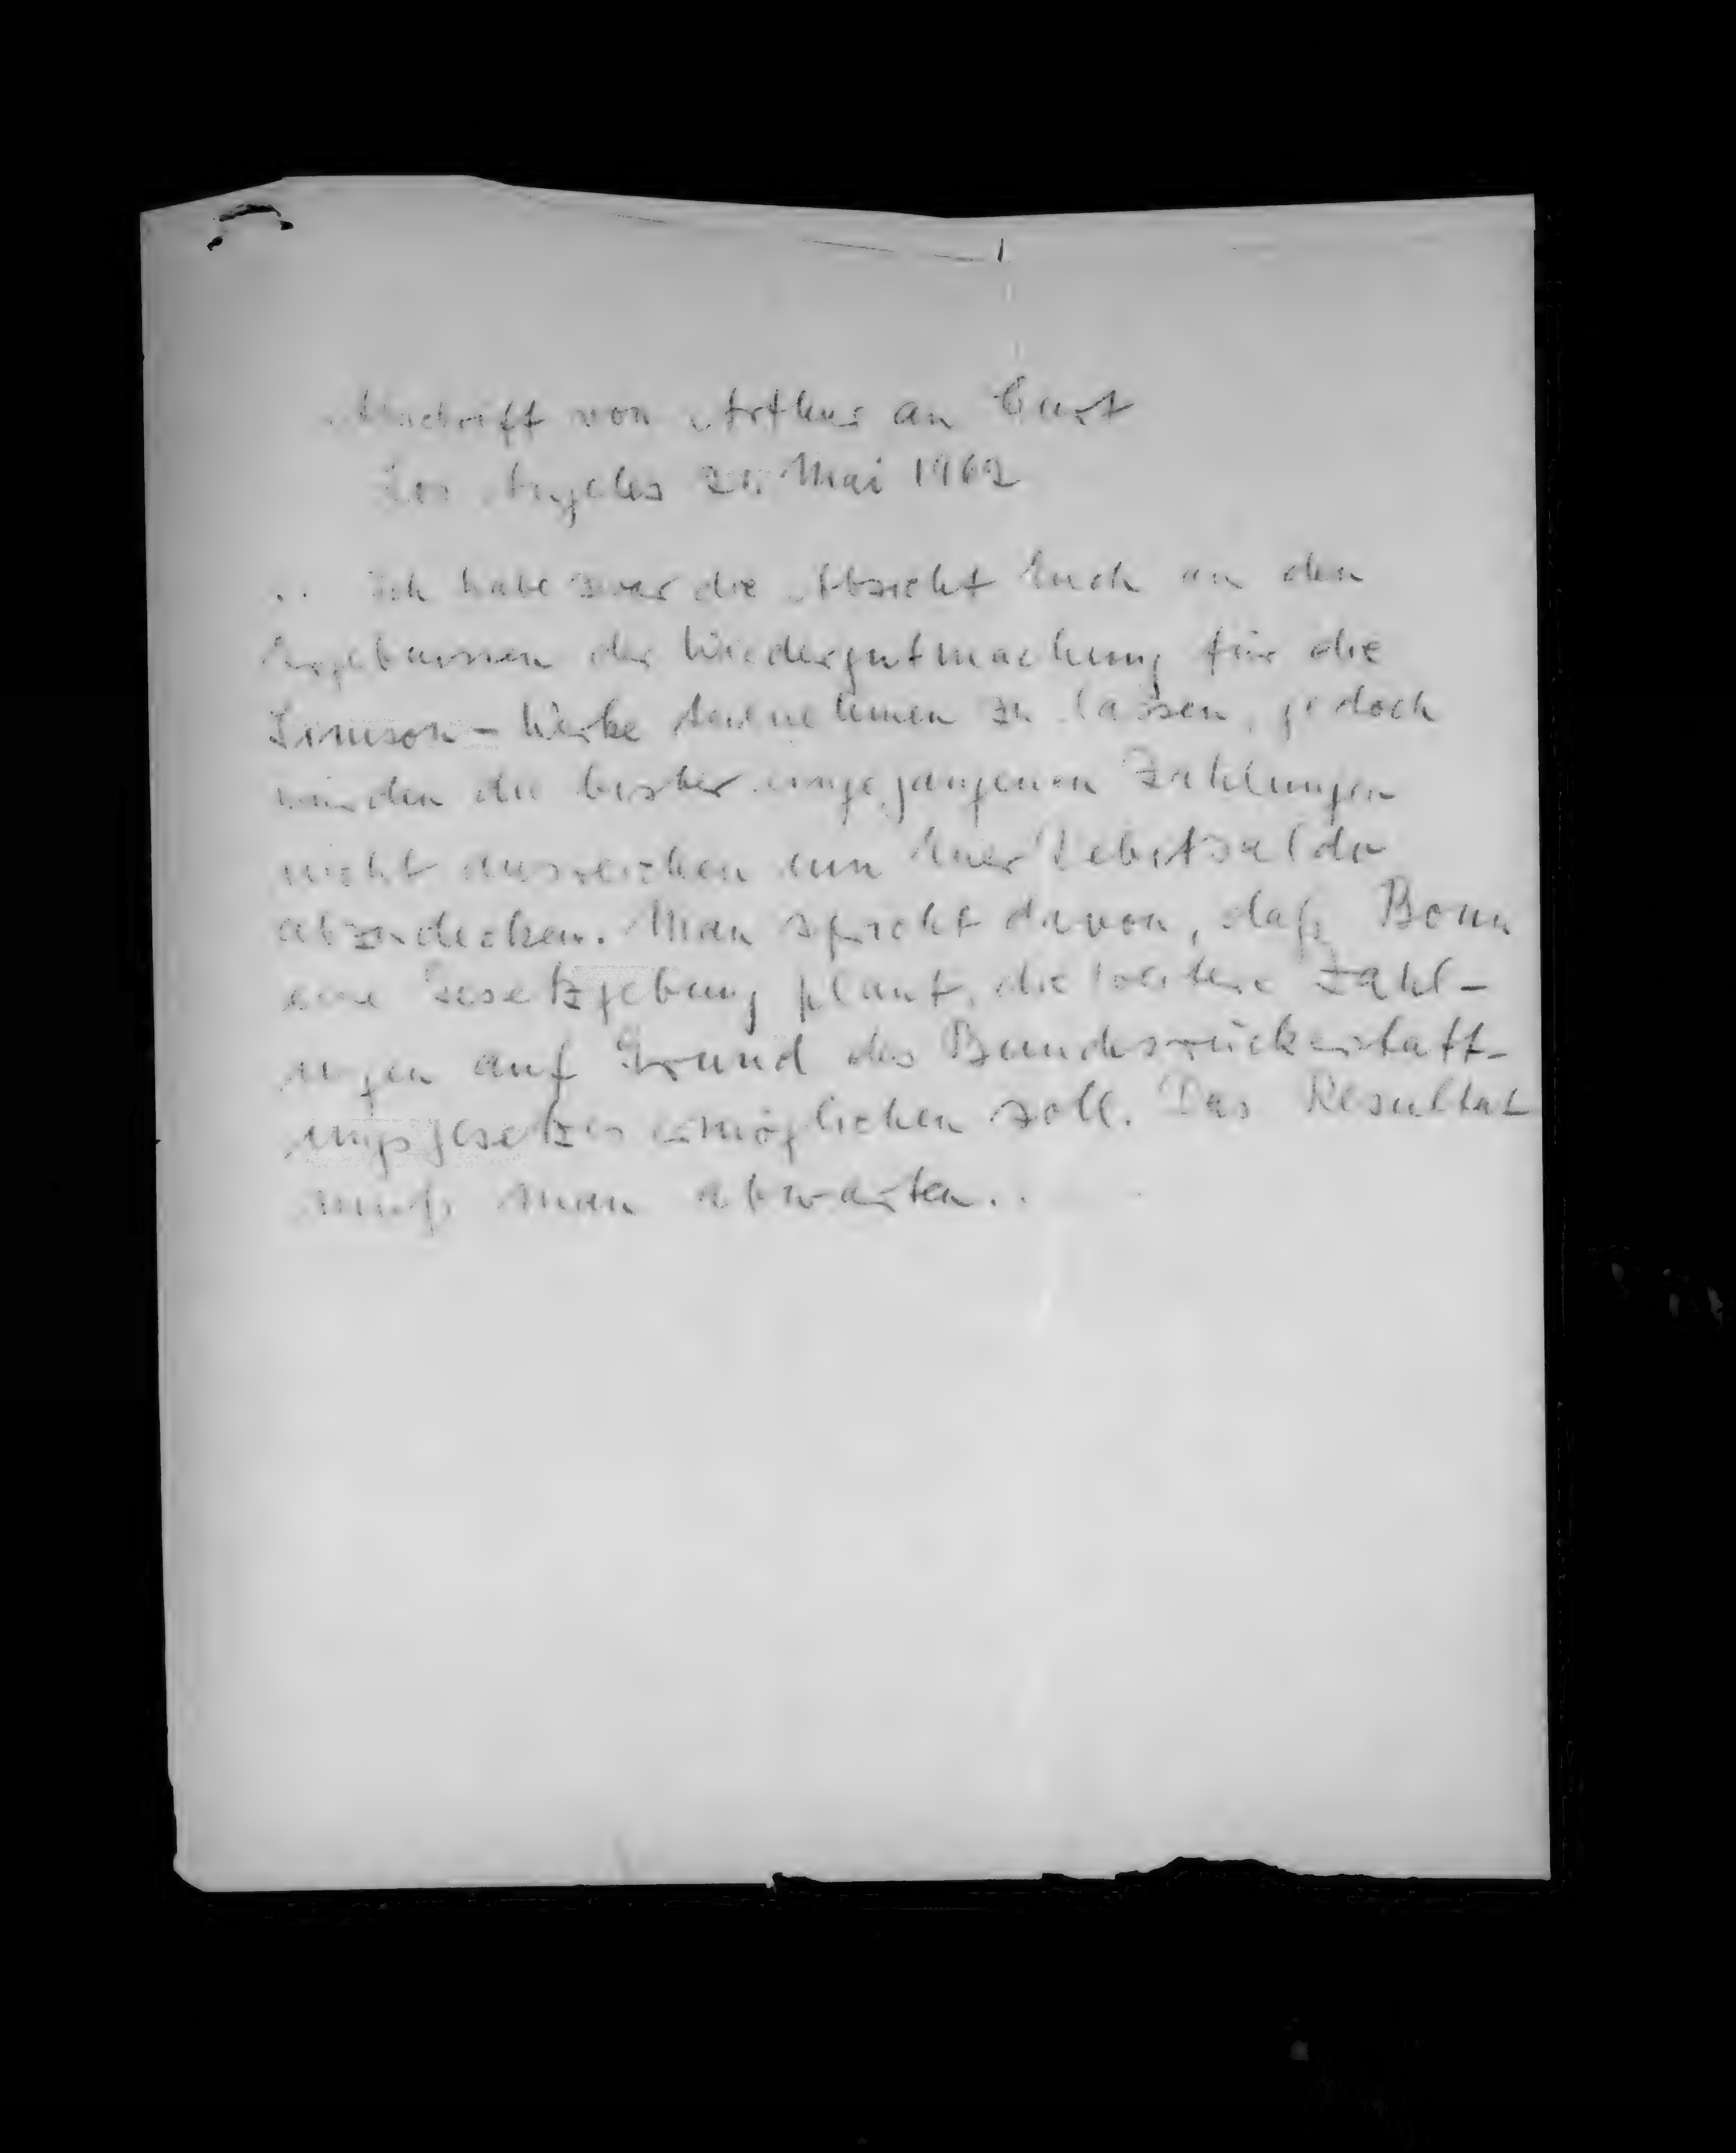 Abschrift von Arthur an Curt
Los Angeles 21. Mai 1962
.. Ich habe zwar die Absicht Euch an den
Ergebnissen der Wiedergutmachung für die
Simson - Werke teilnehmen zu lassen, jedoch
würden die bisher eingegangenen Zahlungen
nicht ausreichen um Euer Debetsaldo
abzudecken. Man spricht davon, daß Bonn
eine Gesetzgebung plant, die weitere Zahl-
ungen auf Grund des Bundesrückerstatt-
ungsgesetzes ermöglichen soll. Das Resultat
muß man abwarten..